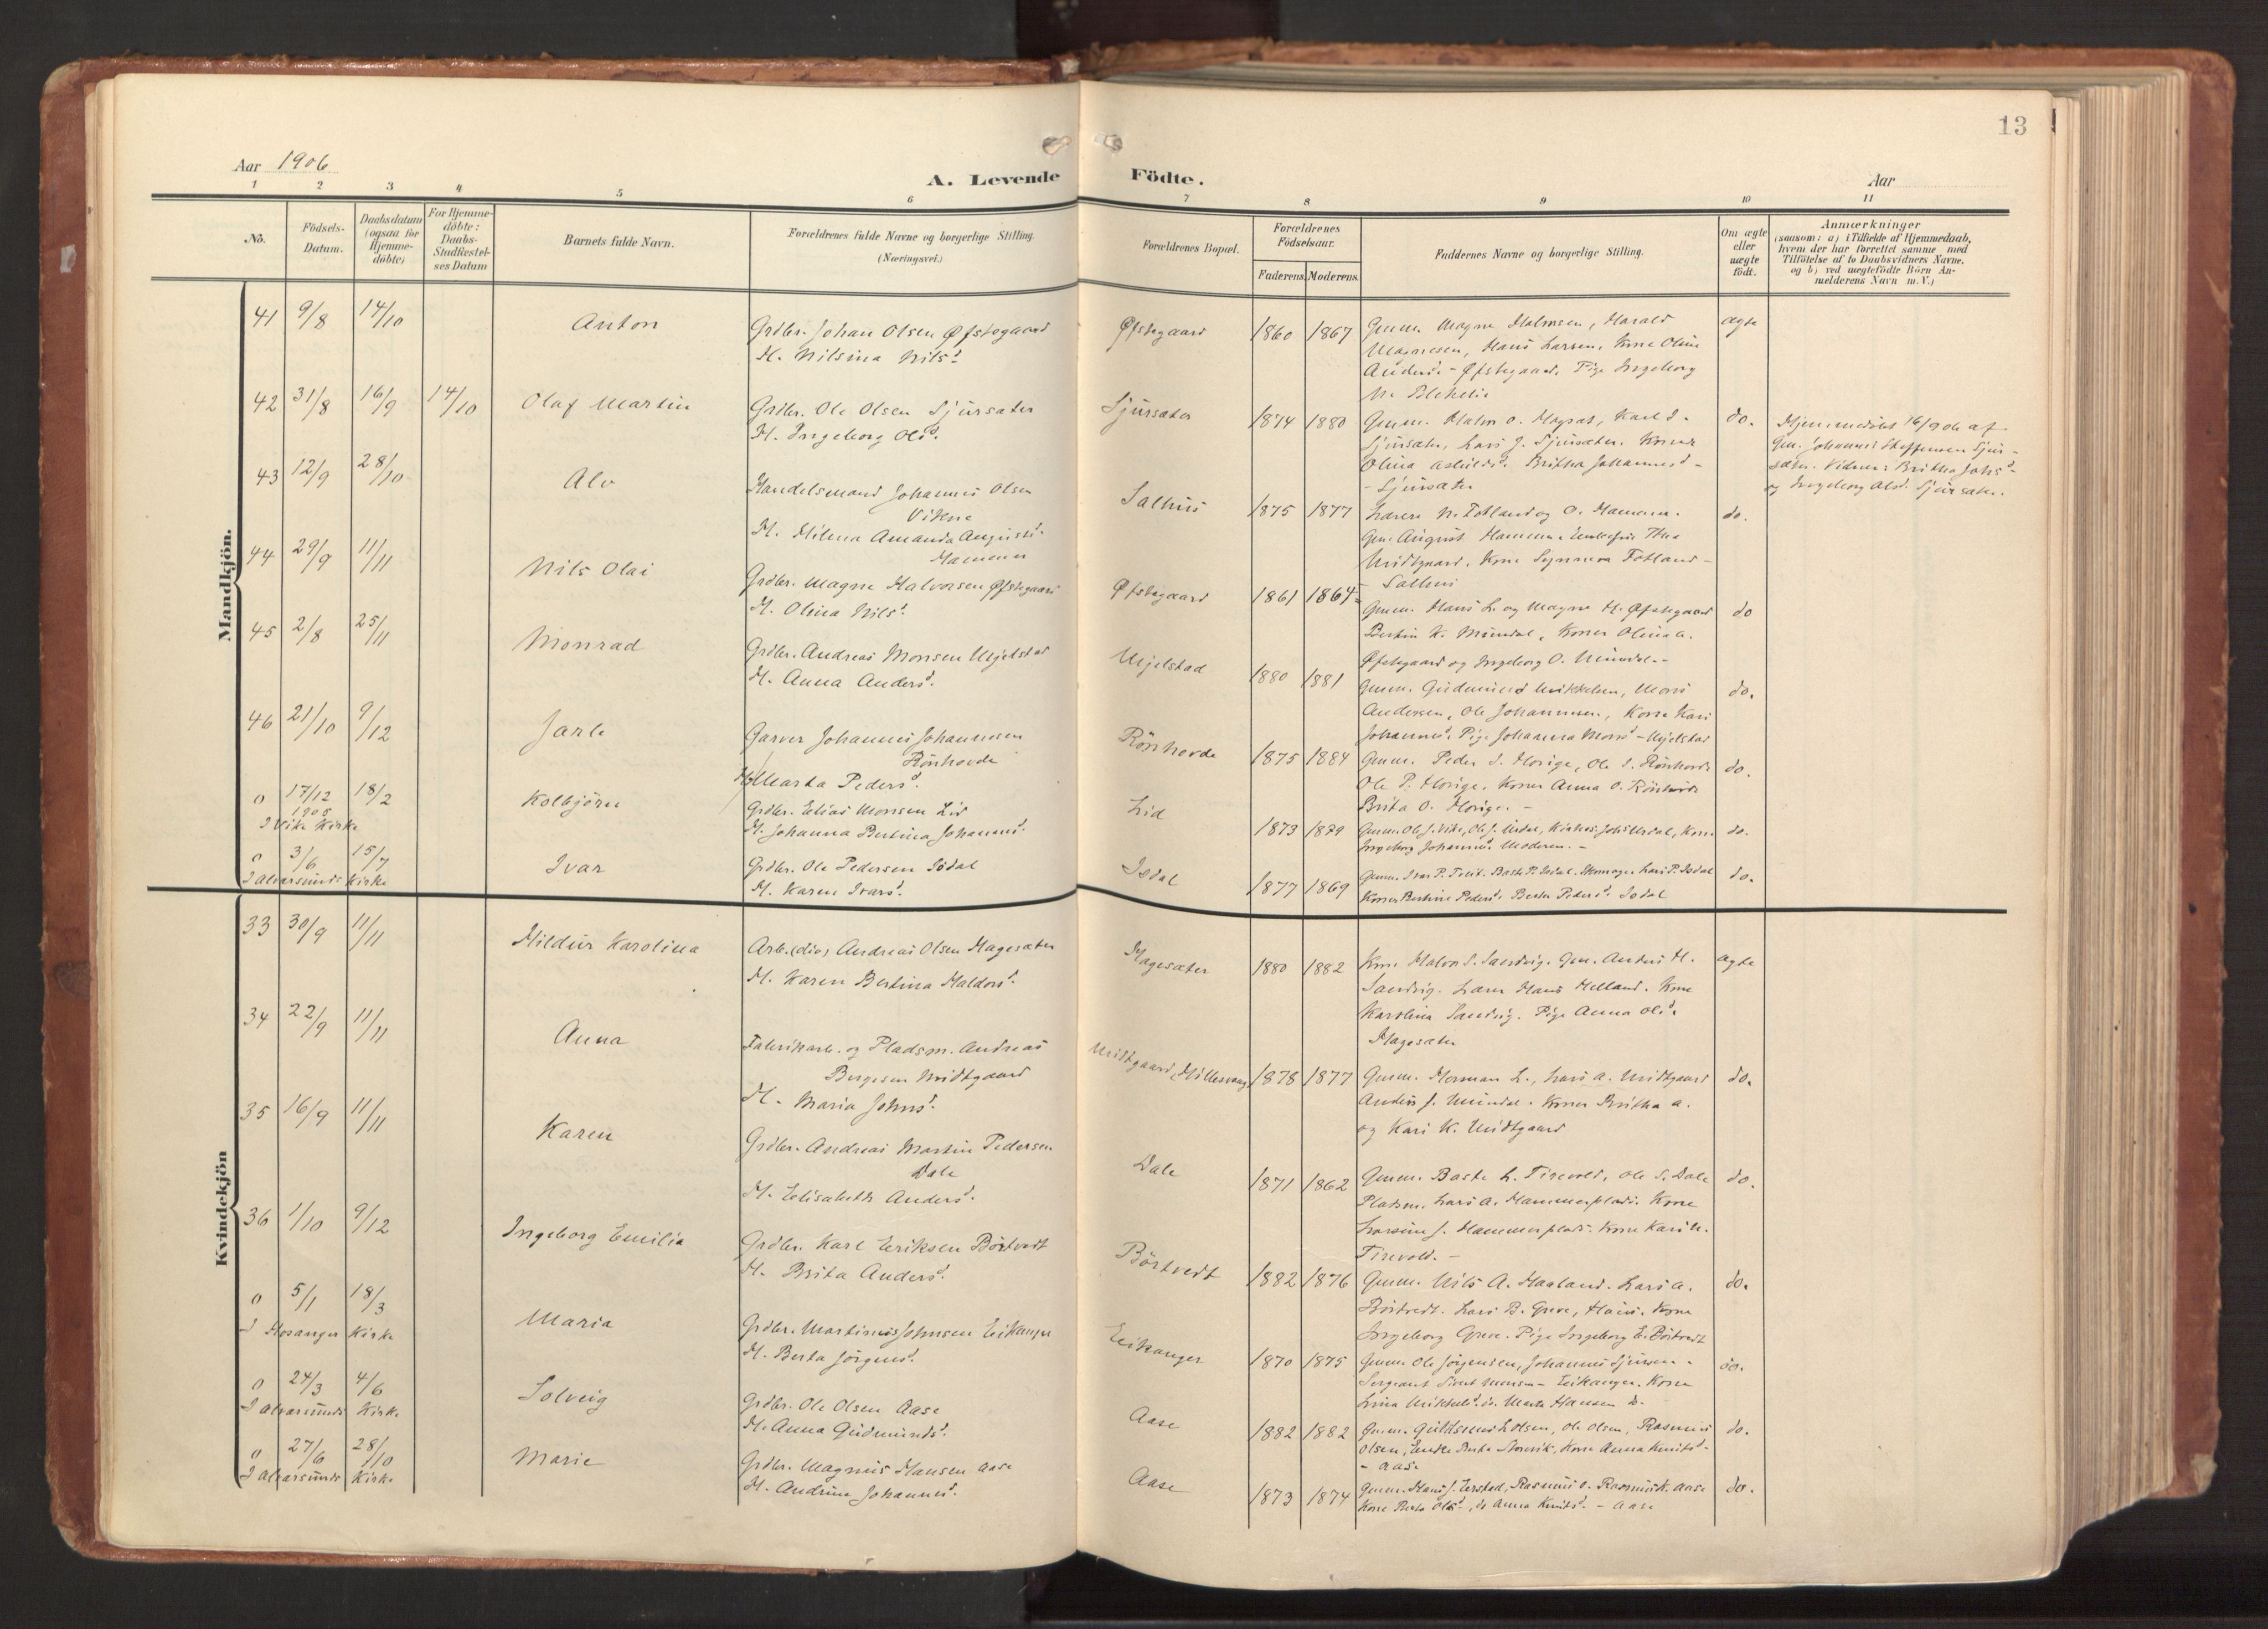 13
Aar 1906
A. Levende Födte.
Aar
1 2 3 4 5 6 7 8 9 10 11
No.
Födsels-
Datum.
Daabsdatum
(ogsaa for
Hjemme-
döbte)
For Hjemme-
döbte:
Daabs-
Stadfæstel-
ses Datum
Barnets fulde Navn.
Forældrenes fulde Navne og borgerlige Stilling.
(Næringsvei.)
Forældrenes Bopæl.
Forældrenes
Födselsaar.
Faderens. Moderens.
Faddernes Navne og borgerlige Stilling.
Om ægte
eller
uægte
födt.
Anmærkninger
(saasom: a) i Tilfælde af Hjemmedaab,
hvem der har forrettet samme med
Tilföielse af to Daabsvidners Navne,
og b) ved uægtefödte Börn An-
melderens Navn m. V.)
Mandkjön.
41 9/8 14/10 Anton
Grdbr. Johan Olsen Øfstegaard
H. Nilsina Nilsd.
Øfstegaard 1860 1867
Gmm. Magne Halvorsen, Harald
Magnesen, Hans Larsen, Kone Olina
Andersd. - Øfstegaard. Pige Ingeborg
ægte
42 31/8 16/9 14/10 Olaf Martin
Grdbr. Ole Olsen Sjursæter
H. Ingeborg Olsd.
Sjursæter 1874 1880
Sjursæter, Lars J. Sjursæter. Koner
Olina Britha Johannesd. -
- Sjursæter
do.
Hjemmedöbt 16/9 06 af
Gm. Johannes Steffensen Sjur-
sæter. Vidner: Britha Johsd.
og Ingeborg Olsd. Sjursæter.
43 12/9 28/10 Alv
Handelsmand Johannes Olsen
Vikne
H. Hilma Amanda Augustsd.
Hammer
Salhus 1875 1877
Lærere N. Fotland og O. Hammer.
Gm. August Hammer. Enkefru Thea
Midtgaard, Kone Synneva Fotland -
- Salhus
do.
44 29/9 11/11 Nils Olai
Grdbr. Magne Halvorsen Øfstegaard
H. Olina Nilsd.
Øfstegaard 1861 1864
Gmm. Hans L. og Magne H. Øfstegaard
Bertin K. Mundal, Koner Olina A.
Øfstegaard og Ingeborg O. Mundal. -
do
45 2/8 25/11 Monrad
Grdbr. Andreas Monsen Mjelstad
H. Anna Andersd.
Mjelstad 1880 1881
Gmm. Gudmund Mikkelsen, Mons
Andersen, Ole Johannesen, Kone Kari
Johannesd. Pige Johanna Monsd. - Mjelstad
do.
46 21/10 9/12 Jarle
Garver Johannes Johannesen
Rönhovde
H. Marta Pedersd.
Rönhovde 1875 1884
Gmm. Peder S. Horige, Ole S. Rönhovde
Ole P. Horige, Koner Anna O. Rönhovde
Brita O. Horige. -
do.
0 17/12 1905 18/2 Kolbjörn
I Vike Kirke
Grdbr. Elias Monsen Lid
H. Johanna Bertina Johannesd.
Lid 1873 1879
Gmm. Ole J. Vike, Ole J. Urdal, Johs Urdal, Kone
Ingeborg Johannesd. Moderen. -
do.
0 3/6 15/7 Ivar
I Alversunds Kirke
Grdbr. Ole Pedersen Isdal
H. Karen Ivarsd.
Isdal 1877 1869
Gmm. Ivar P. Baste P. Isdal. Lars P. Isdal
Koner Bertine Pedersd. Berta Pedersd. Isdal
do.
Kvindekjön
33 30/9 11/11 Hildur Karolina
Arb. (div) Andreas Olsen Hagesæter
H. Karen Bertina Haldorsd.
Hagesæter 1880 1882
Kone Halvor S. Sandvig. Gm. Anders H.
Sandvig. Lærer Hans Helland. Kone
Karolina Sandvig. Pige Anna Olsd.
Hagesæter
ægte
34 22/9 11/11 Anna
Fabrikarb. og Pladsm. Andreas
Bergesen Midtgaard
H. Maria Johnsd.
Midtgaard, 1878 1877
Gmm. Herman L., Lars A. Midtgaard
Anders J. Mundal. Koner Britha A.
og Kari K. Midtgaard
do.
35 16/9 11/11 Karen
Grdbr. Andreas Martin Pedersen
Dale
H. Elisabeth Andersd.
Dale 1871 1862
Gmm. Baste L. Tirevold, Ole S. Dale
Pladsm. Lars A. Hammerplads. Kone
J. Hammerplads. Kone Kari N.
Tirevold. -
do.
36 1/10 9/12 Ingeborg Emilia
Grdbr. Karl Eriksen Börtvedt
H. Brita Andersd.
Börtvedt 1882 1876
Gmm. Nils A. Hagland. Lars A.
Börtvedt. Lars B. Greve, Haus. Kone
Ingeborg Greve. Pige Ingeborg E. Börtvedt
do.
0 5/1 18/3 Maria
I Hosanger Kirke
Grdbr. Martinus Johnsen Eikanger
H. Berta Jörgensd.
Eikanger 1870 1875
Gmm. Ole Jörgensen, Johannes Sjursen -
Sergeant Sivert Monsen - Eikanger. Kone
Lina Mikkelsd. do. Marta Hansen do.
do.
0 24/3 4/6 Solveig
I Alversunds Kirke
Grdbr. Ole Olsen Aase
H. Anna Gudmundsd.
Aase 1882 1882
Gmm. Ole Olsen, Rasmus
Olsen, Enke Berta Kone Anna Knutsd. -
- Aase
do.
0 27/6 28/10 Marie
I Alversunds Kirke
Grdbr. Magnus Hansen Aase
H. Andrine Johannesd.
Aase 1873 1874
Gmm. Hans J. Rasmus O. Rasmus K. Aase
Kone Berta Olsd., do Anna Knutsd. - Aase
do.